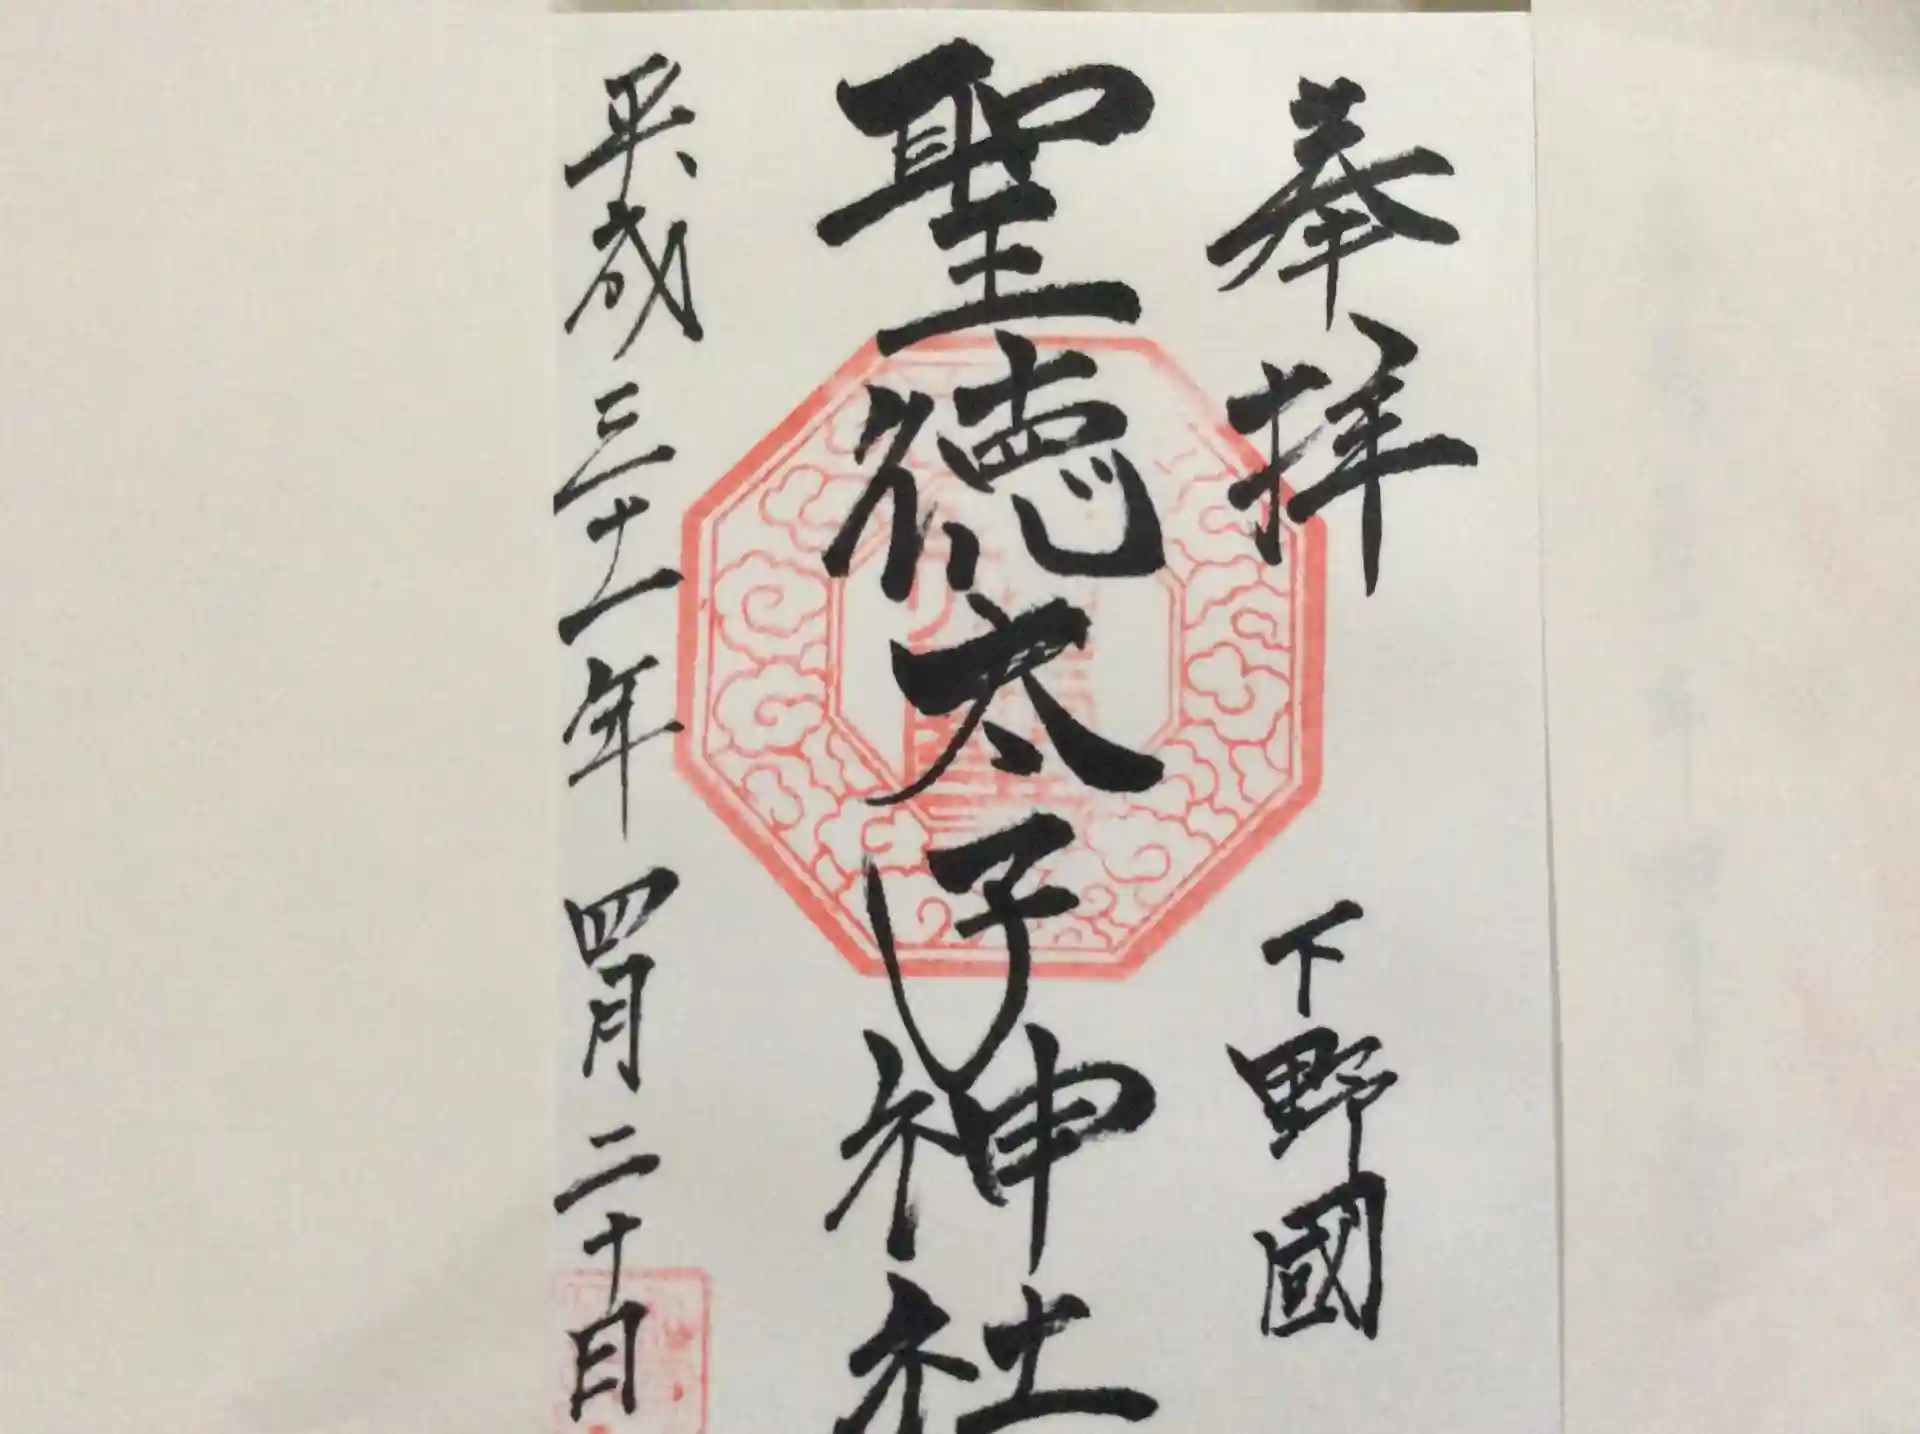 奉拝 下野國
聖徳太子神社
平成三十一年四月二十日